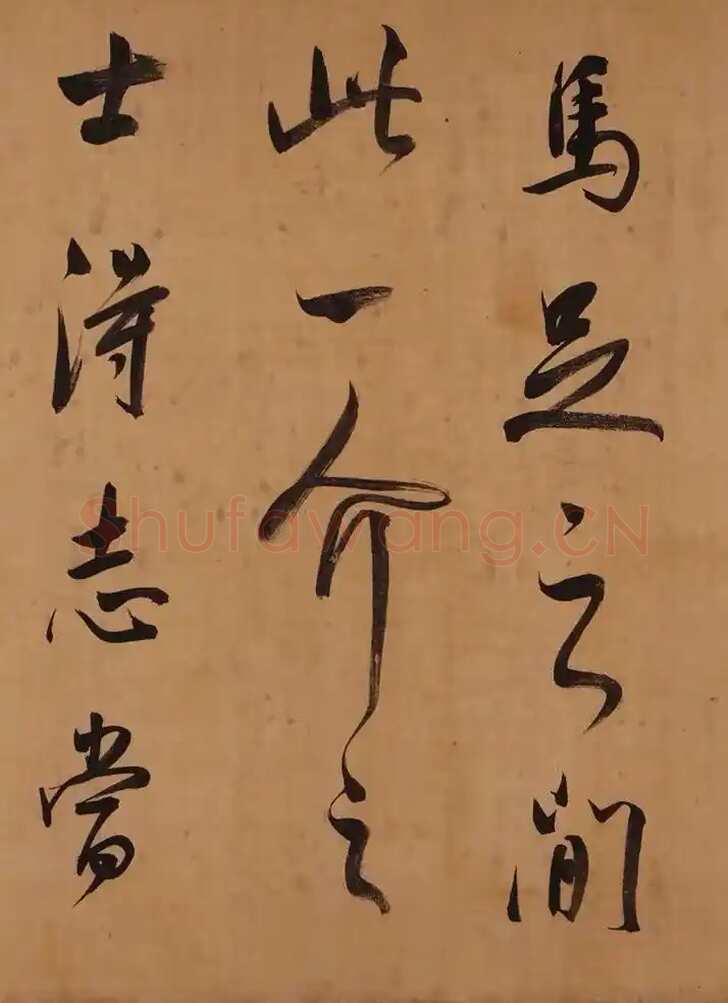 馬足之間
此一介之
士得志當
Shufawang.CN